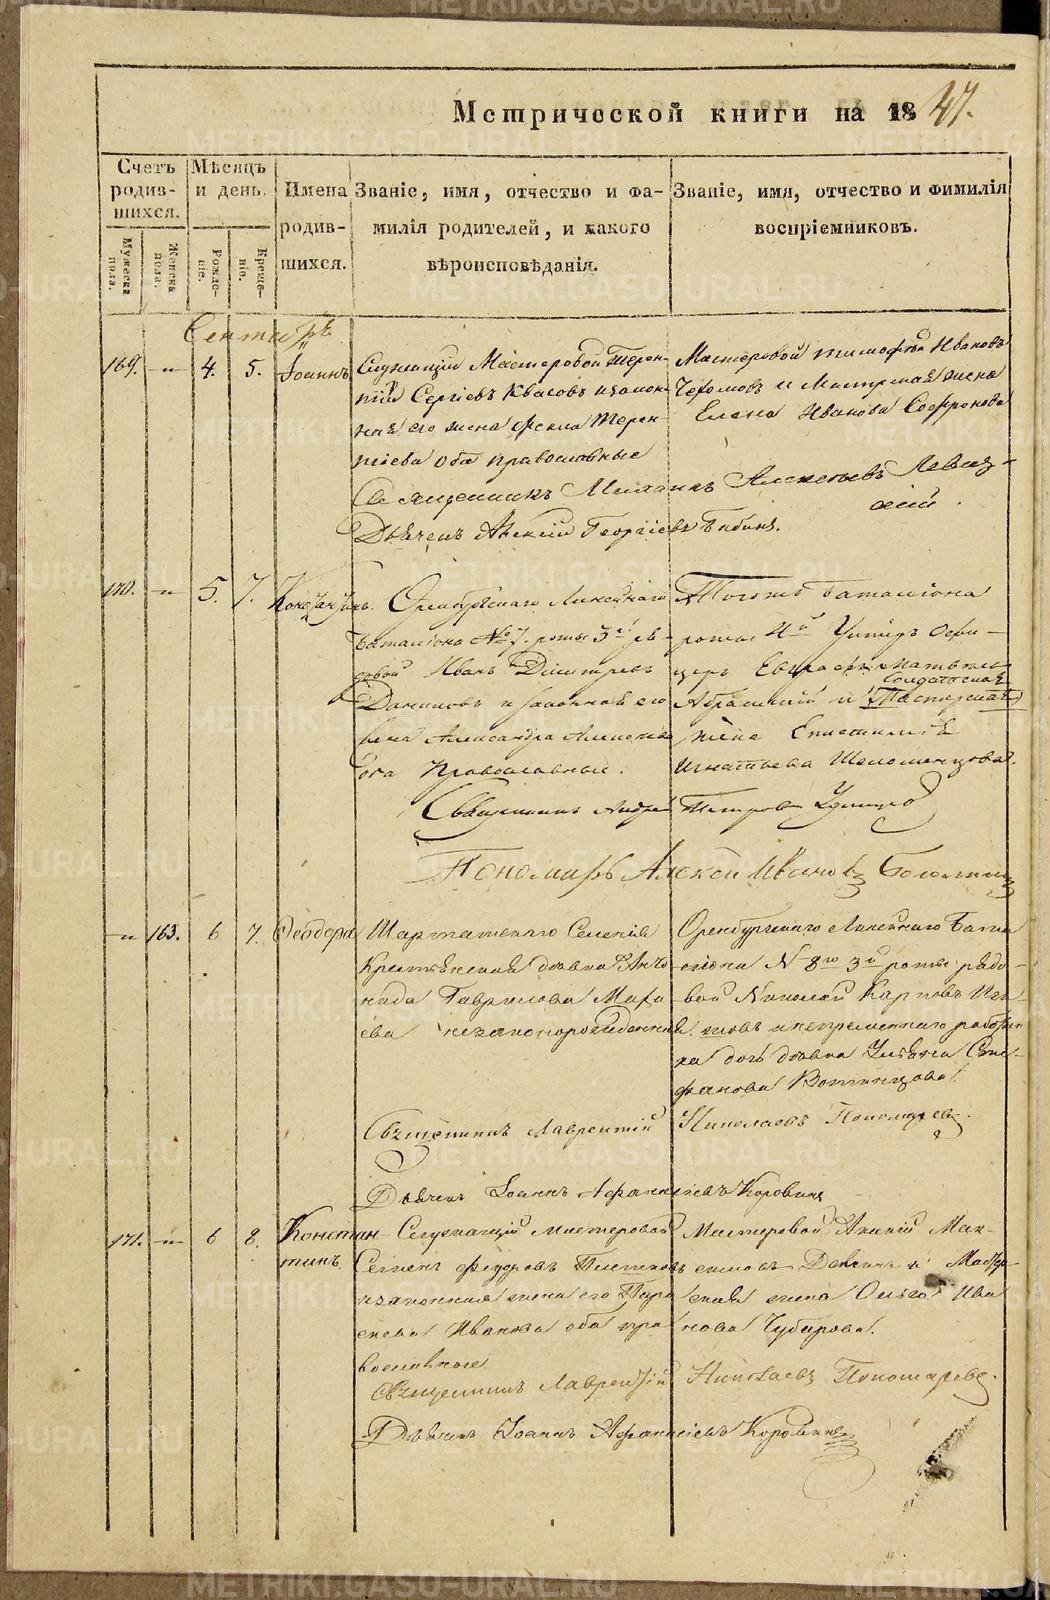 Метрической книги на 1847.
Счетъ родив-шихся.
Мужеска пола.
Женска пола.
Мѣсяцъ и день.
Рожде-ніе.
Креще-ніе.
Имена родив-шихся.
Званіе, имя, отчество и фа-
милія родителей, и какого
вѣроисповѣданія.
Званіе, имя, отчество и фимилія
воспріемниковъ.
Сентябрь
169. — 4. 5. Іоаннъ
Служащій Мастеровой Терен-
тій Сергіевъ Квасовъ и закон-
ная его жена Фекла Терен-
тіева оба православные
Мастеровой Тимофей Ивановъ
и Мастерская жена
Елена Иванова Софронова
Священникъ Михаилъ Алексіевъ Левиц-
кій.
Дьячекъ Алексій Георгіевъ Бабинъ.
170. — 5. 7. Константинъ.
Оренбургскаго Линейнаго
баталіона № 7. роты 3й ря-
довой Иванъ Димитріевъ
Даниловъ и законная его
жена Александра
оба Православные.
Тогожъ Баталіона
роты 4й Унтеръ Офи-
церъ Евграфъ
Солдатская
и Мастерская
жена Епистимія
Игнатьева
Священникъ Андрей Петровъ
Пономарь Алексей Ивановъ
— 163. 6 7. Ѳеодора
Шарташскаго Селенія
Крестьянская дѣвка
Гаврилова
ева незаконорожденная.
Оренбургскаго Линейнаго Бата
ліона № 8го 3й роты рядо-
вой Николай Карповъ
и непременнаго работни
ка дочь дѣвка Ульяна Сте-
фанова
Священникъ Лаврентій Николаевъ Пономаревъ.
Дьячекъ Іоаннъ Афанасіевъ Коровинъ
171. — 6 8. Констан
тинъ.
Служащій мастеровой
Семенъ Федоровъ
и законная жена его Пара
скева Иванова оба пра
вославные
Мастеровой
симовъ и Мастер-
ская жена Ольга Ива
нова Чубарова.
Священникъ Лаврентій Николаевъ Пономаревъ.
Дьячекъ Іоаннъ Афанасіевъ Коровинъ
METRIKI.GASO-URAL.RU